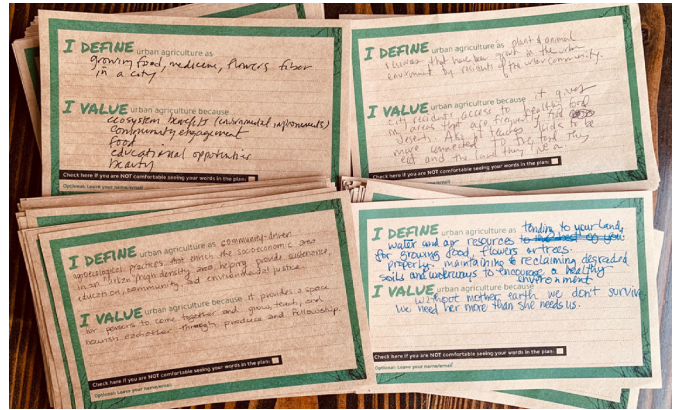 I DEFINE urban agriculture as
growing food, medicine, flowers fiber
in a city
I VALUE urban agriculture because
ecosystem benefits (environmental improvements)
community engagement
food
educational opportunities
beauty
Check here if you are NOT comfortable seeing your words in the plan:
Optional: Leave your name/email
I DEFINE urban agriculture as plant & animal
that have been grown in the urban
environment by residents of the urban community.
I VALUE urban agriculture because it gives
city residents access to healthy food
in areas that are frequently food
deserts. Also it teaches kids to be
more connected to the food they
eat and the land they live on.
Check here if you are NOT comfortable seeing your words in the plan:
Optional: Leave your name/email
I DEFINE urban agriculture as community-driven
agroecological practices that enrich the socioeconomic
in an urban/high density area helping provide sustenance,
education, community, and environmental justice.
I VALUE urban agriculture because it provides a space
for persons to come together and grow, teach, and
nourish each other through produce and fellowship.
Check here if you are NOT comfortable seeing your words in the plan:
Optional: Leave your name/email
I DEFINE urban agriculture as tending to your land,
water and air resources
for growing food, flowers or trees.
properly, maintaining & reclaiming degraded
soils and waterways to encourage a healthy
environment
I VALUE urban agriculture because
without mother earth we don't survive
we need her more than she needs us.
Check here if you are NOT comfortable seeing your words in the plan:
Optional: Leave your name/email